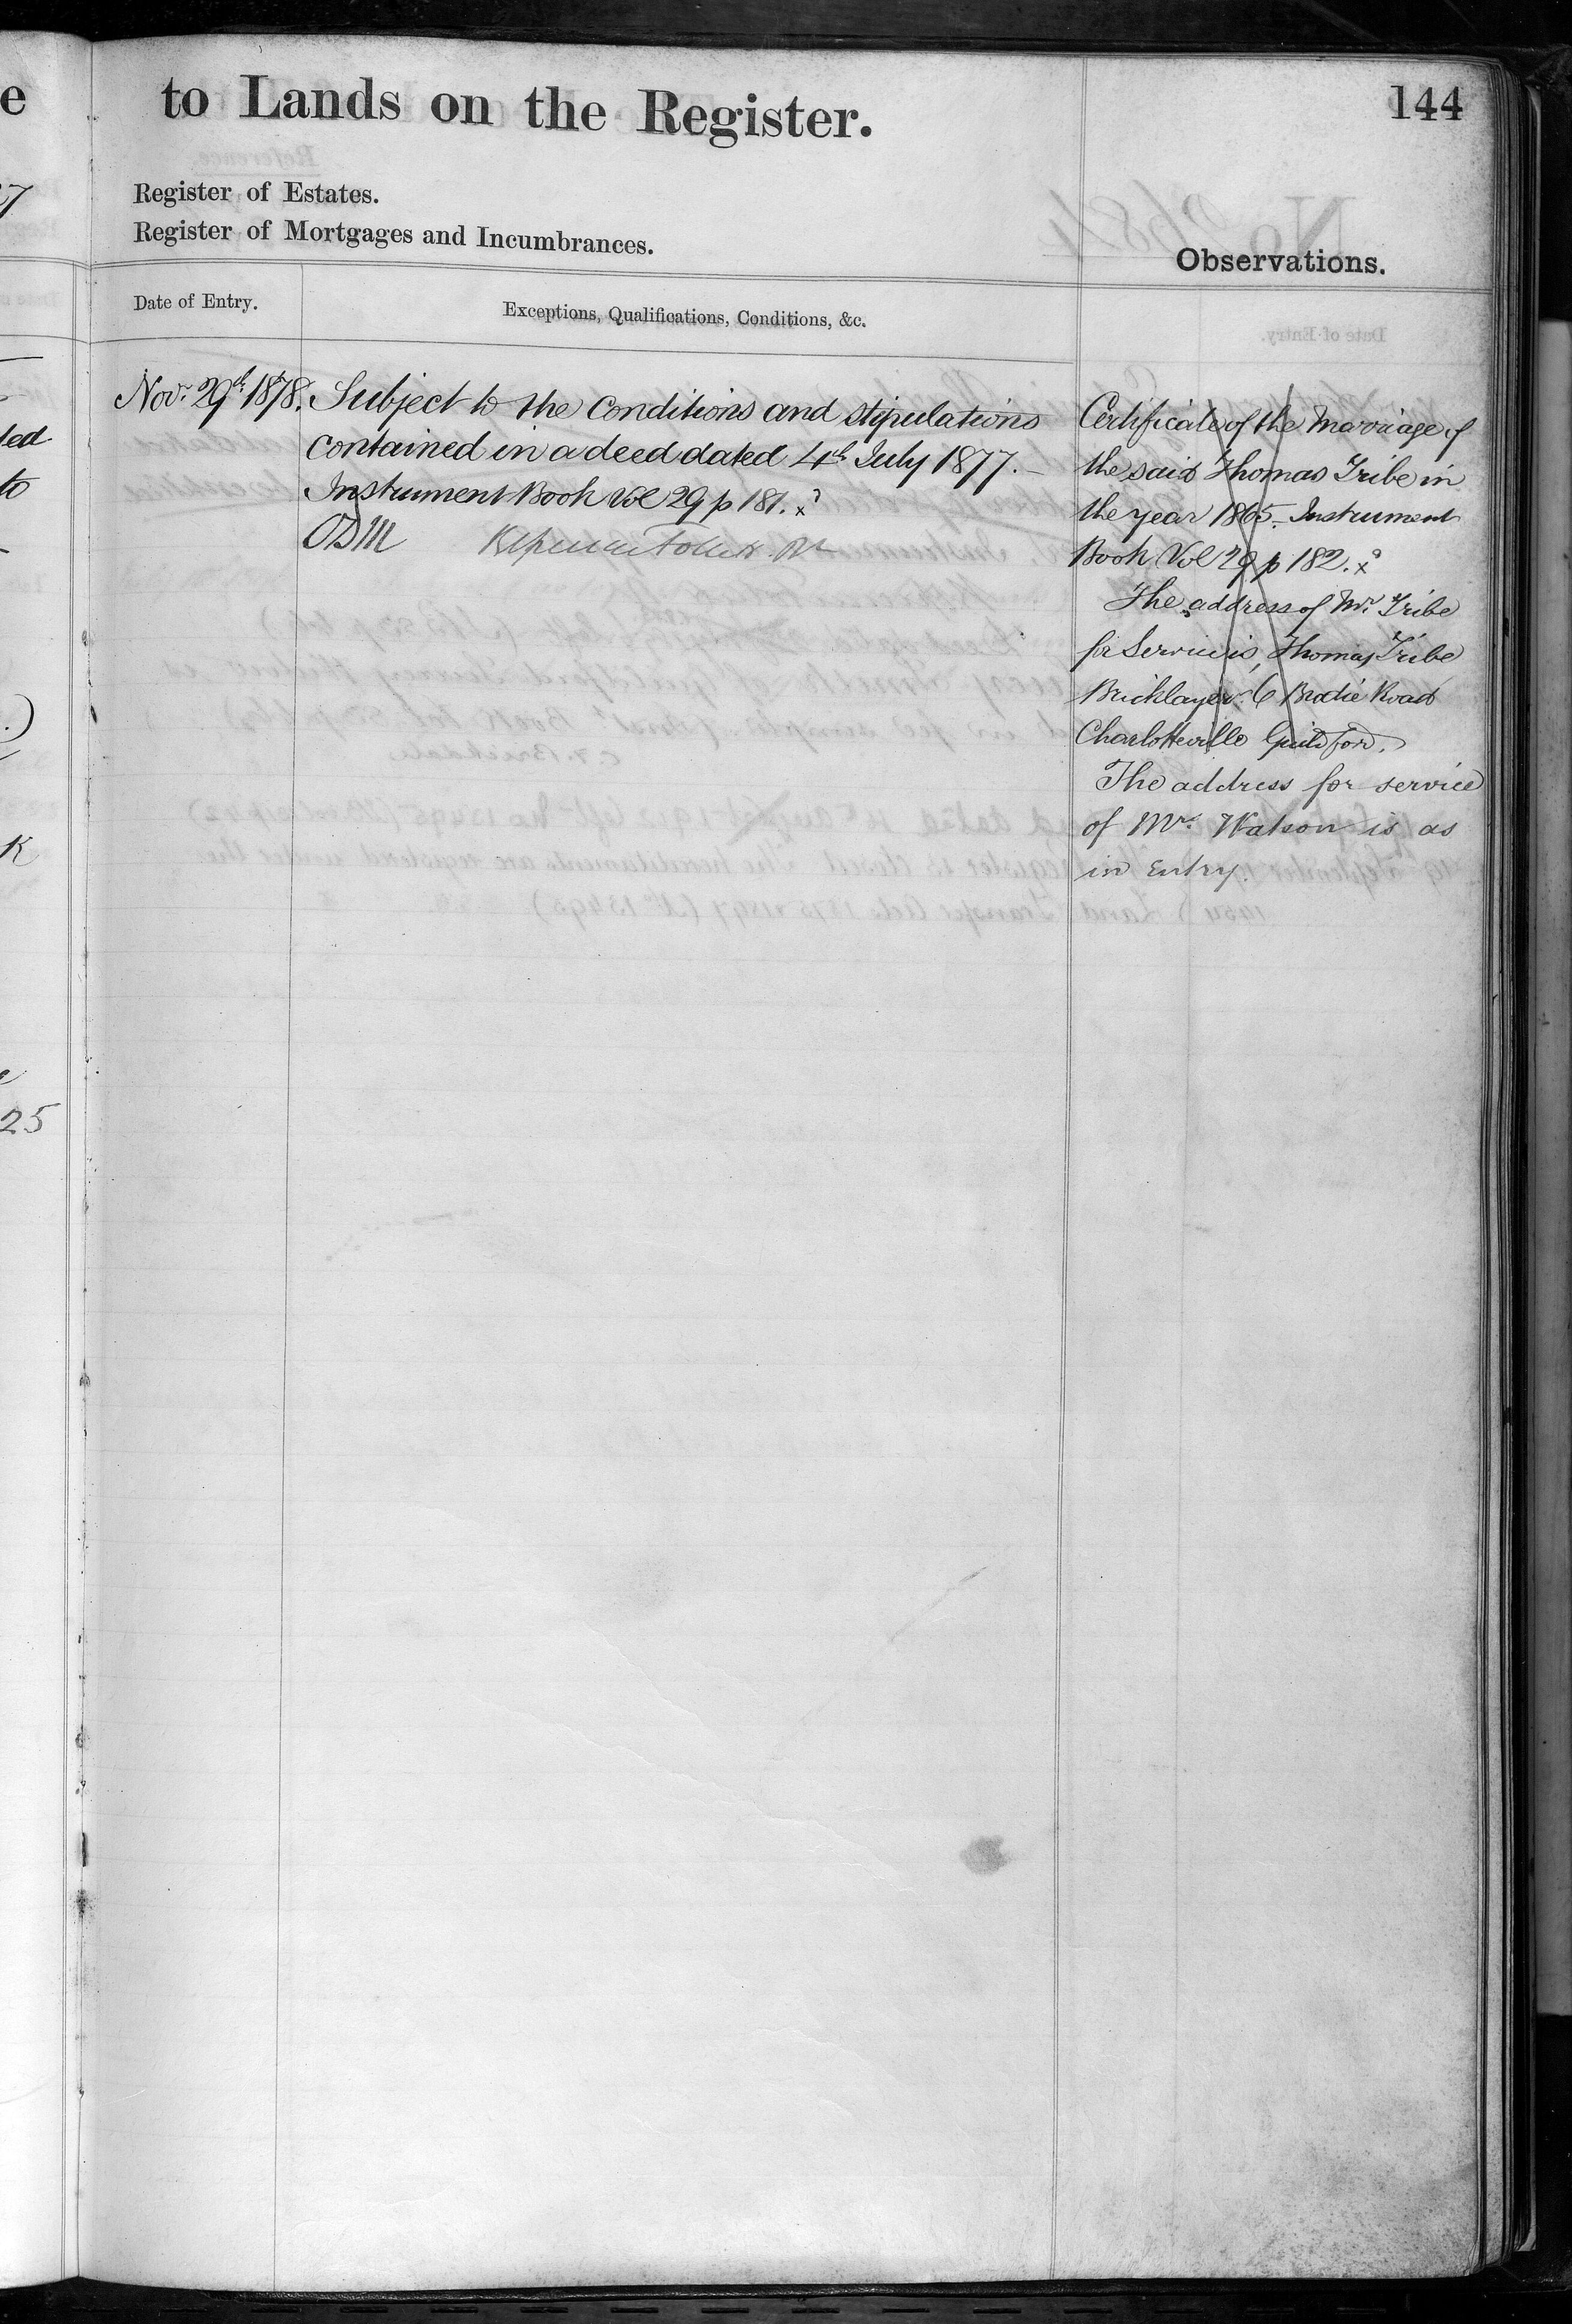 to Lands on the Register.
144
Register of Estates.
Register of Mortgages and Incumbrances.
Observations.
Date of Entry.
Exceptions, Qualifications, Conditions, &c.
Novr. 29th 1878.
Subject to the Conditions and stipulations
contained in a deed dated 4th July 1877. –
Instrument Book Vol 29 p 181. x
Certificate of the Marriage of
the said Thomas Tribe in
the year 1865. Instrument
Book Vol 29 p 182. x
The address of Mr. Tribe
for Service is, Thomas Tribe
Bricklayer 6 Brodie Road
Charlotteville Guildford.
The address for service
of Mr. Watson is as
in Entry.
e
7
ted
to
.)
K
25